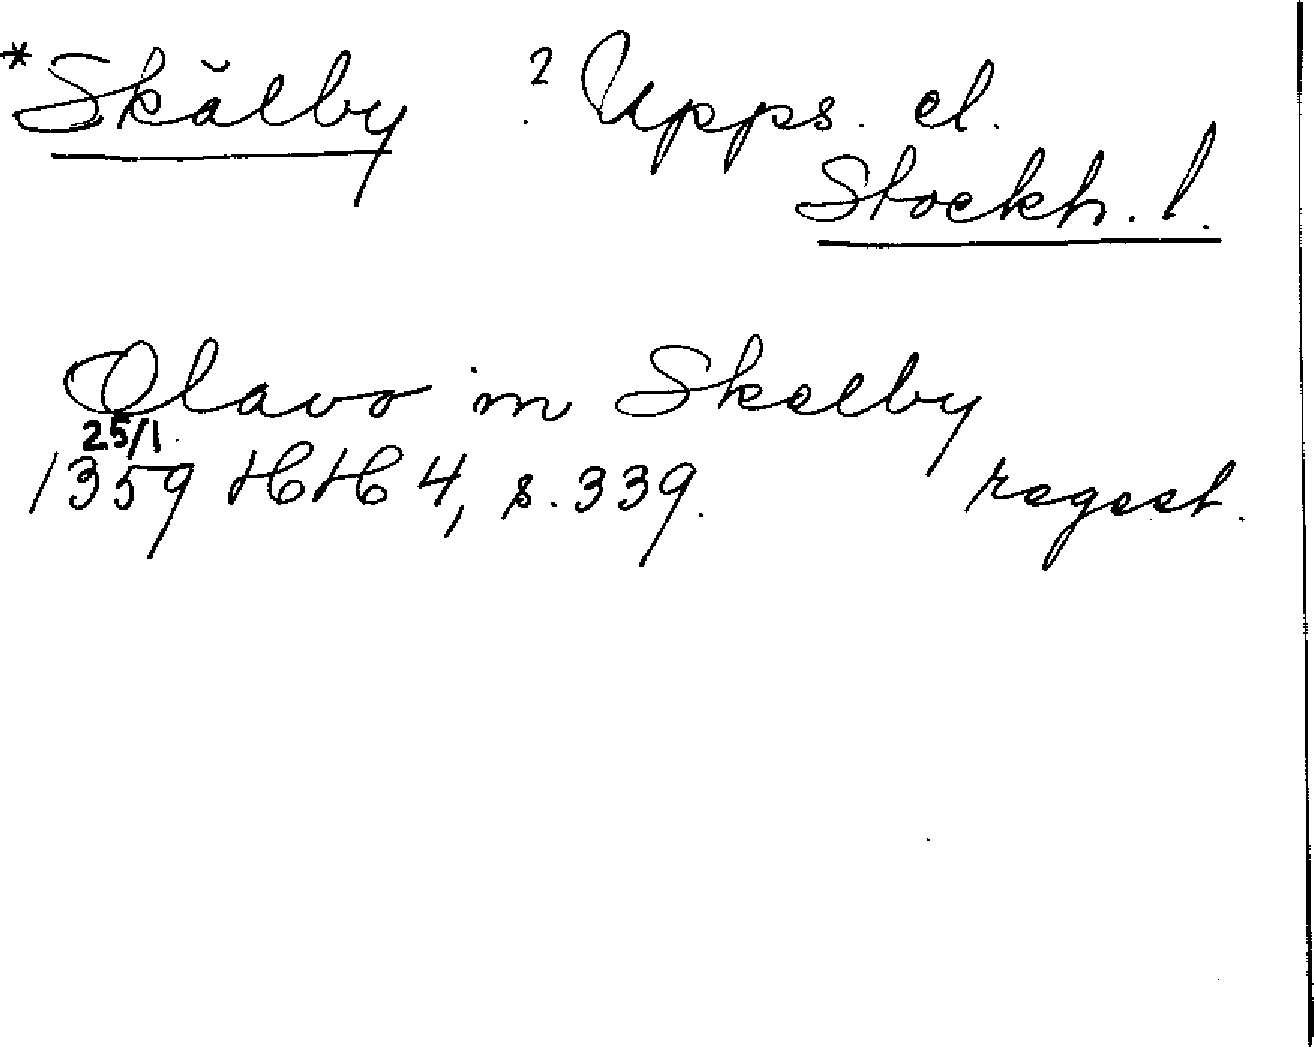 *Skälby ? Upps. el.
Stockh. l.
Olavo in Skelby
25/1.
1359 HH 4, s. 339. regest.